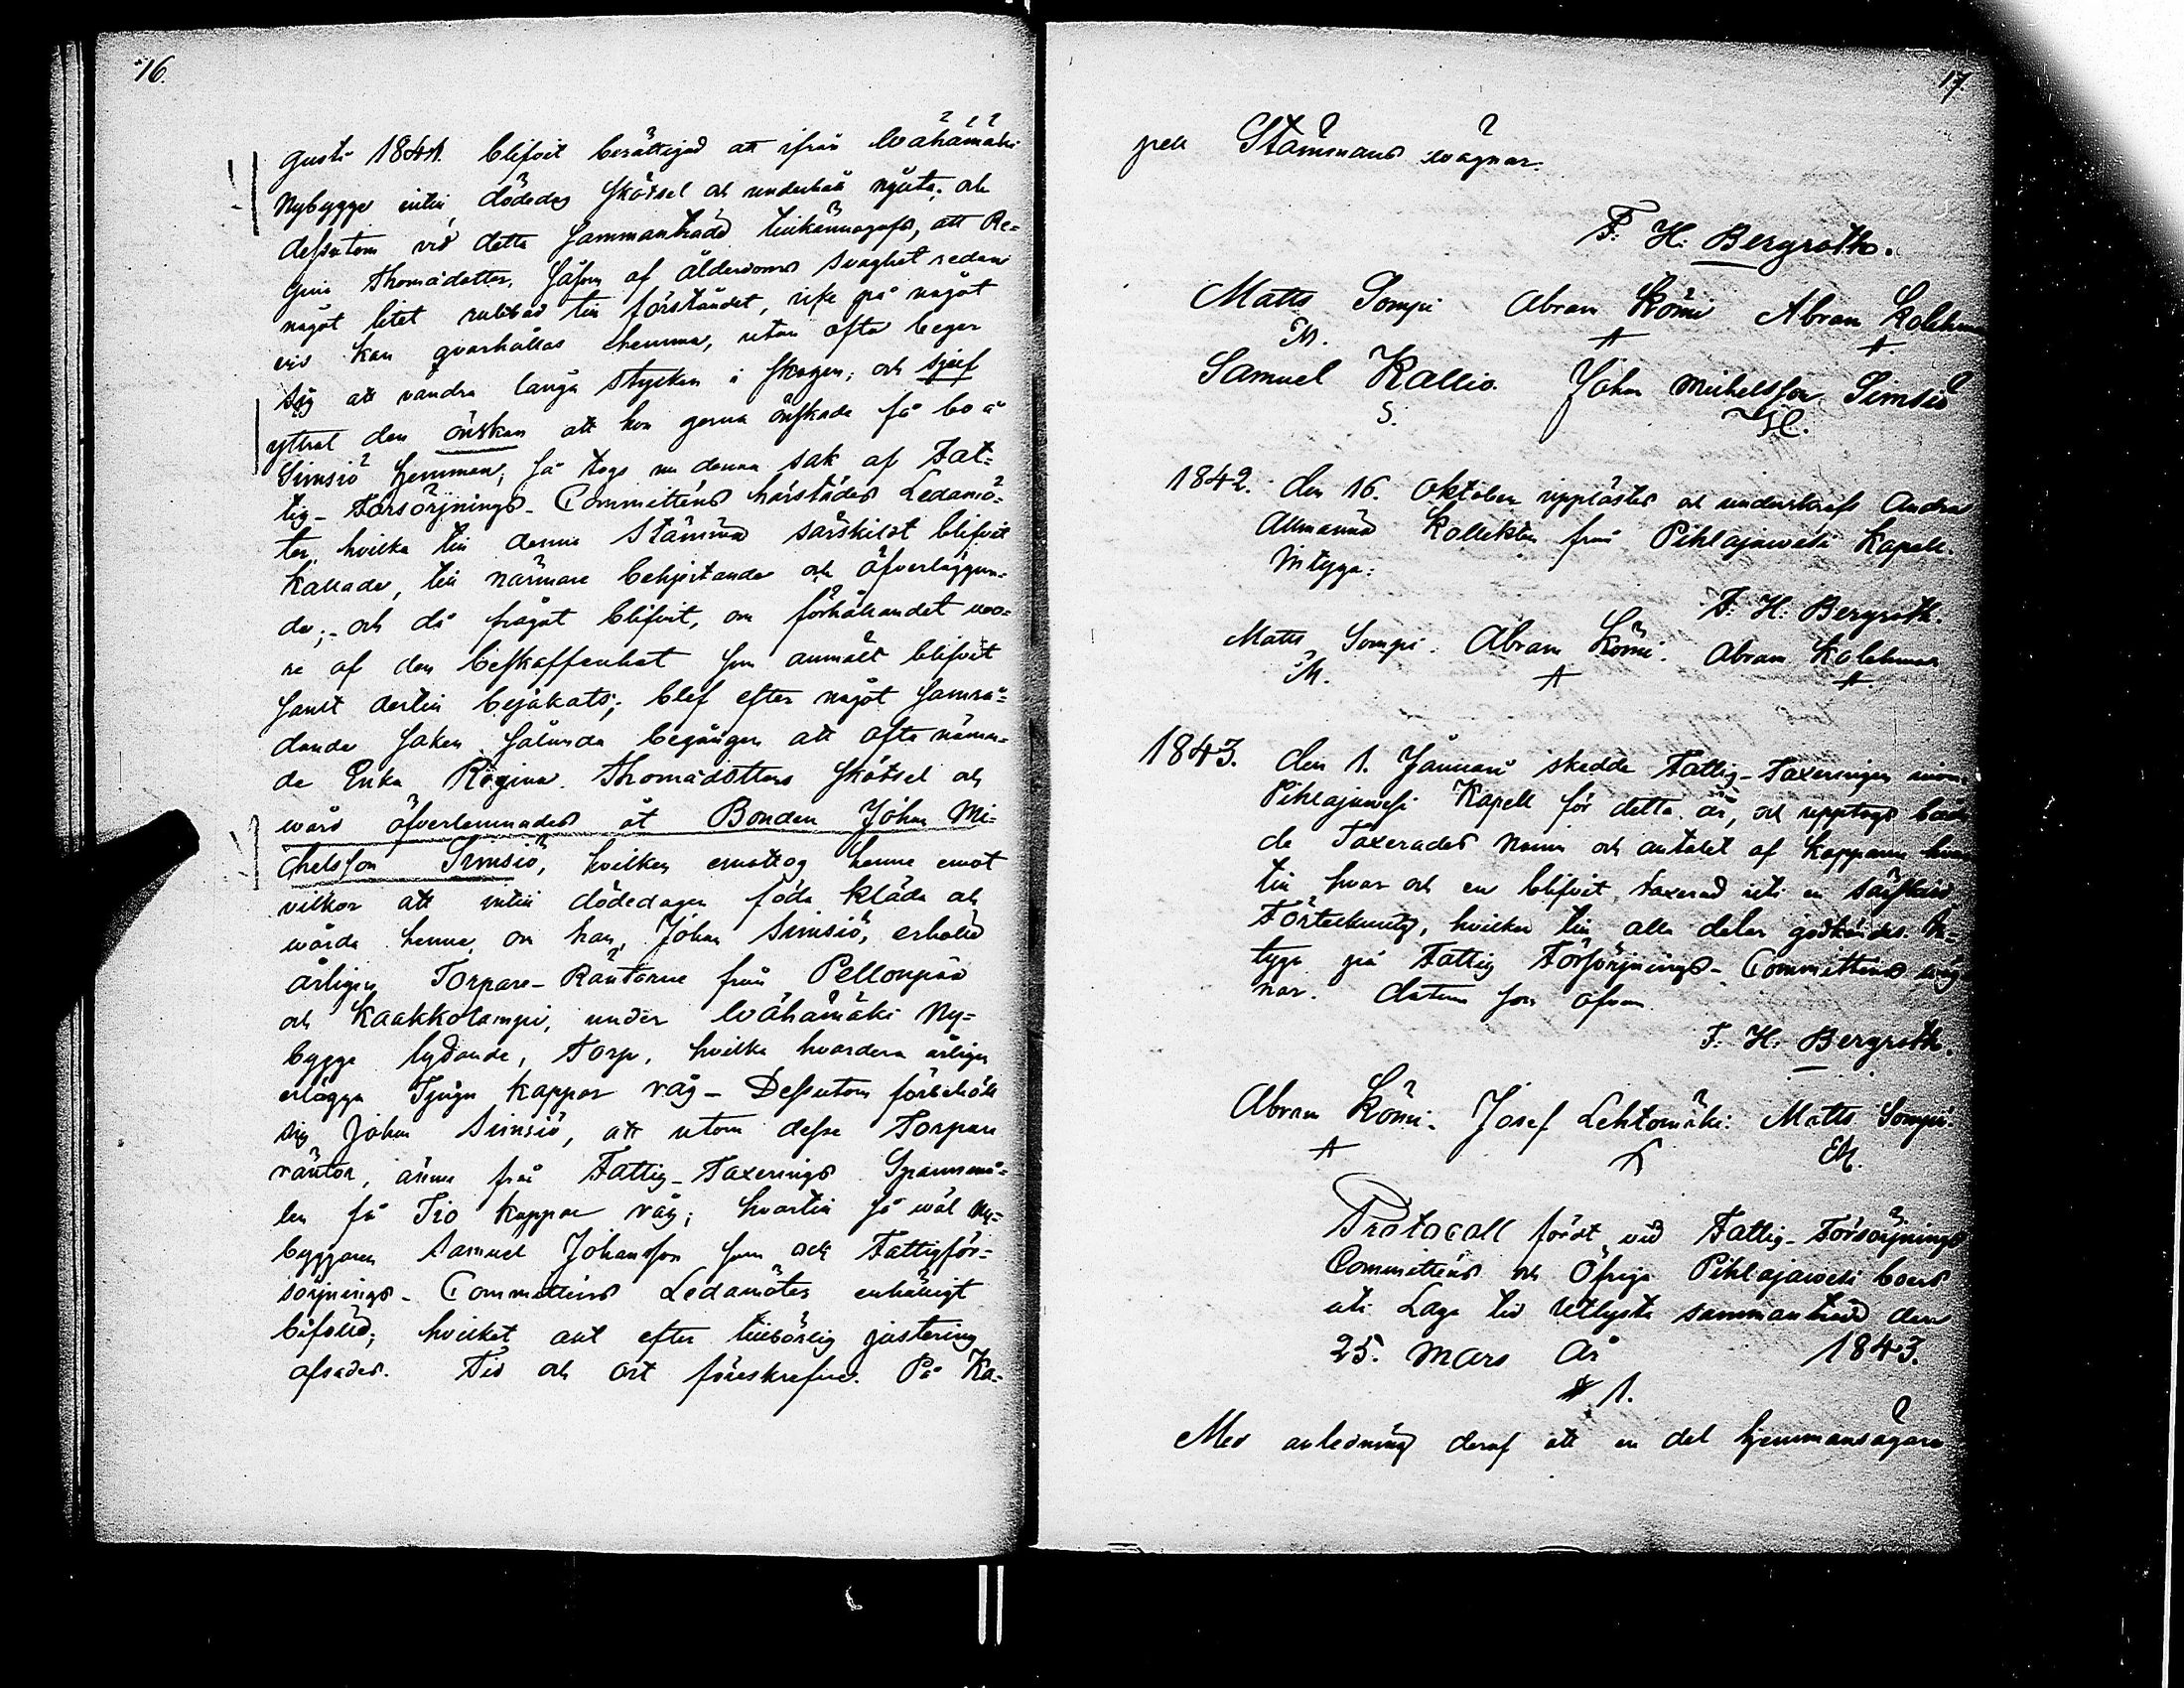 16.
gusti 1841. blifvit berättigad att ifrån Wähämäki
Nybygge intill dödedag skötsel och underhåll njuta; och
dessutom vid detta sammanträde tillkännagafs, att Re-
gina Thomadotter, såsom af ålderdoms svaghet redan
något litet rubbad till förståndet, icke på något
vis kan qvarhållas hemma, utan ofta beger
sig att vandra långa stycken i skogen; och sjelf
yttrat den önskan att hon gerna önskade få bo å
Simsiö hemman; så togs nu denna sak af Fat-
tig-Försörjnings-Committéns härstädes Ledamö-
ter, hvilka till denna Stämma särskildt blifvit
kallade, till närmare behjertande och öfverläggan-
de; och då frågat blifvit, om förhållandet wo-
re af den beskaffenhet som anmält blifvit
samt dertill bejakats; blef efter något samrå-
dande saken sålunda begången att ofta nämn-
da Enka Regina Thomadotters skötsel och
wård öfverlemnades åt Bonden Johan Mi-
chelsson Simsiö, hvilken emottog henne emot
vilkor att intill dödedagen föda kläda och
wårda henne, om han, Johan Simsiö, erhåller
årligen Torpare-Räntorne från Pellonpää
och Kaakkolampi, under Wähämäki Ny-
bygge lydande, Torp, hvilka hvardera årligen
erlägga Tjugu kappar råg - Dessutom förbehöll
sig Johan Simsiö, att utom dessa Torpare
räntor, ännu från Fattig-Taxerings Spannmå-
len få Tio kappar råg; hvartill så wäl Ny-
byggaren Samuel Johansson som och Fattigför-
sörjnings-Committéens Ledamöter enhälligt
biföllo; hvilket allt efter tillbörlig justering
afsades. Tid och ort föreskrefne. På Ka-
17.
pell Stämmans wägnar.
F. H. Bergroth.
Matts Sompi Abram Kömi Abram Kolehm
M. A A.
Samuel Kallio. Johan Michelsson Simsiö
S.
1842. den 16. Oktober upplästes och underskrefs Andra
Allmänna Kollekten från Pihlajawesi Kapell.
Intyga:
F. H. Bergroth.
Matts Sompi. Abram Kömi. Abram Kolehmen
M. A A.
1843. den 1. Januari skedde Fattig-Taxeringen inom
Pihlajawesi Kapell för detta år, och upptogs både
de Taxerades namn och antalet af kapparne hvar
till hvar och en blifvit taxerad uti en särskild
Förteckning, hvilken till alla delar godkändes. In-
tyga på Fattig Försörjnings-Committéens wäg
nar. datum som ofvan
F. H. Bergroth.
Abram Kömi. Josef Lehtomäki. Matts Sompi.
A M.
Protocoll fördt vid Fattig-Försörjnings
Committéens och Öfriga Pihlajawesi boers
uti Laga tid Utlysta sammanträde den
25. Mars År 1843.
§ 1.
Med anledning deraf att en del hemmansägare